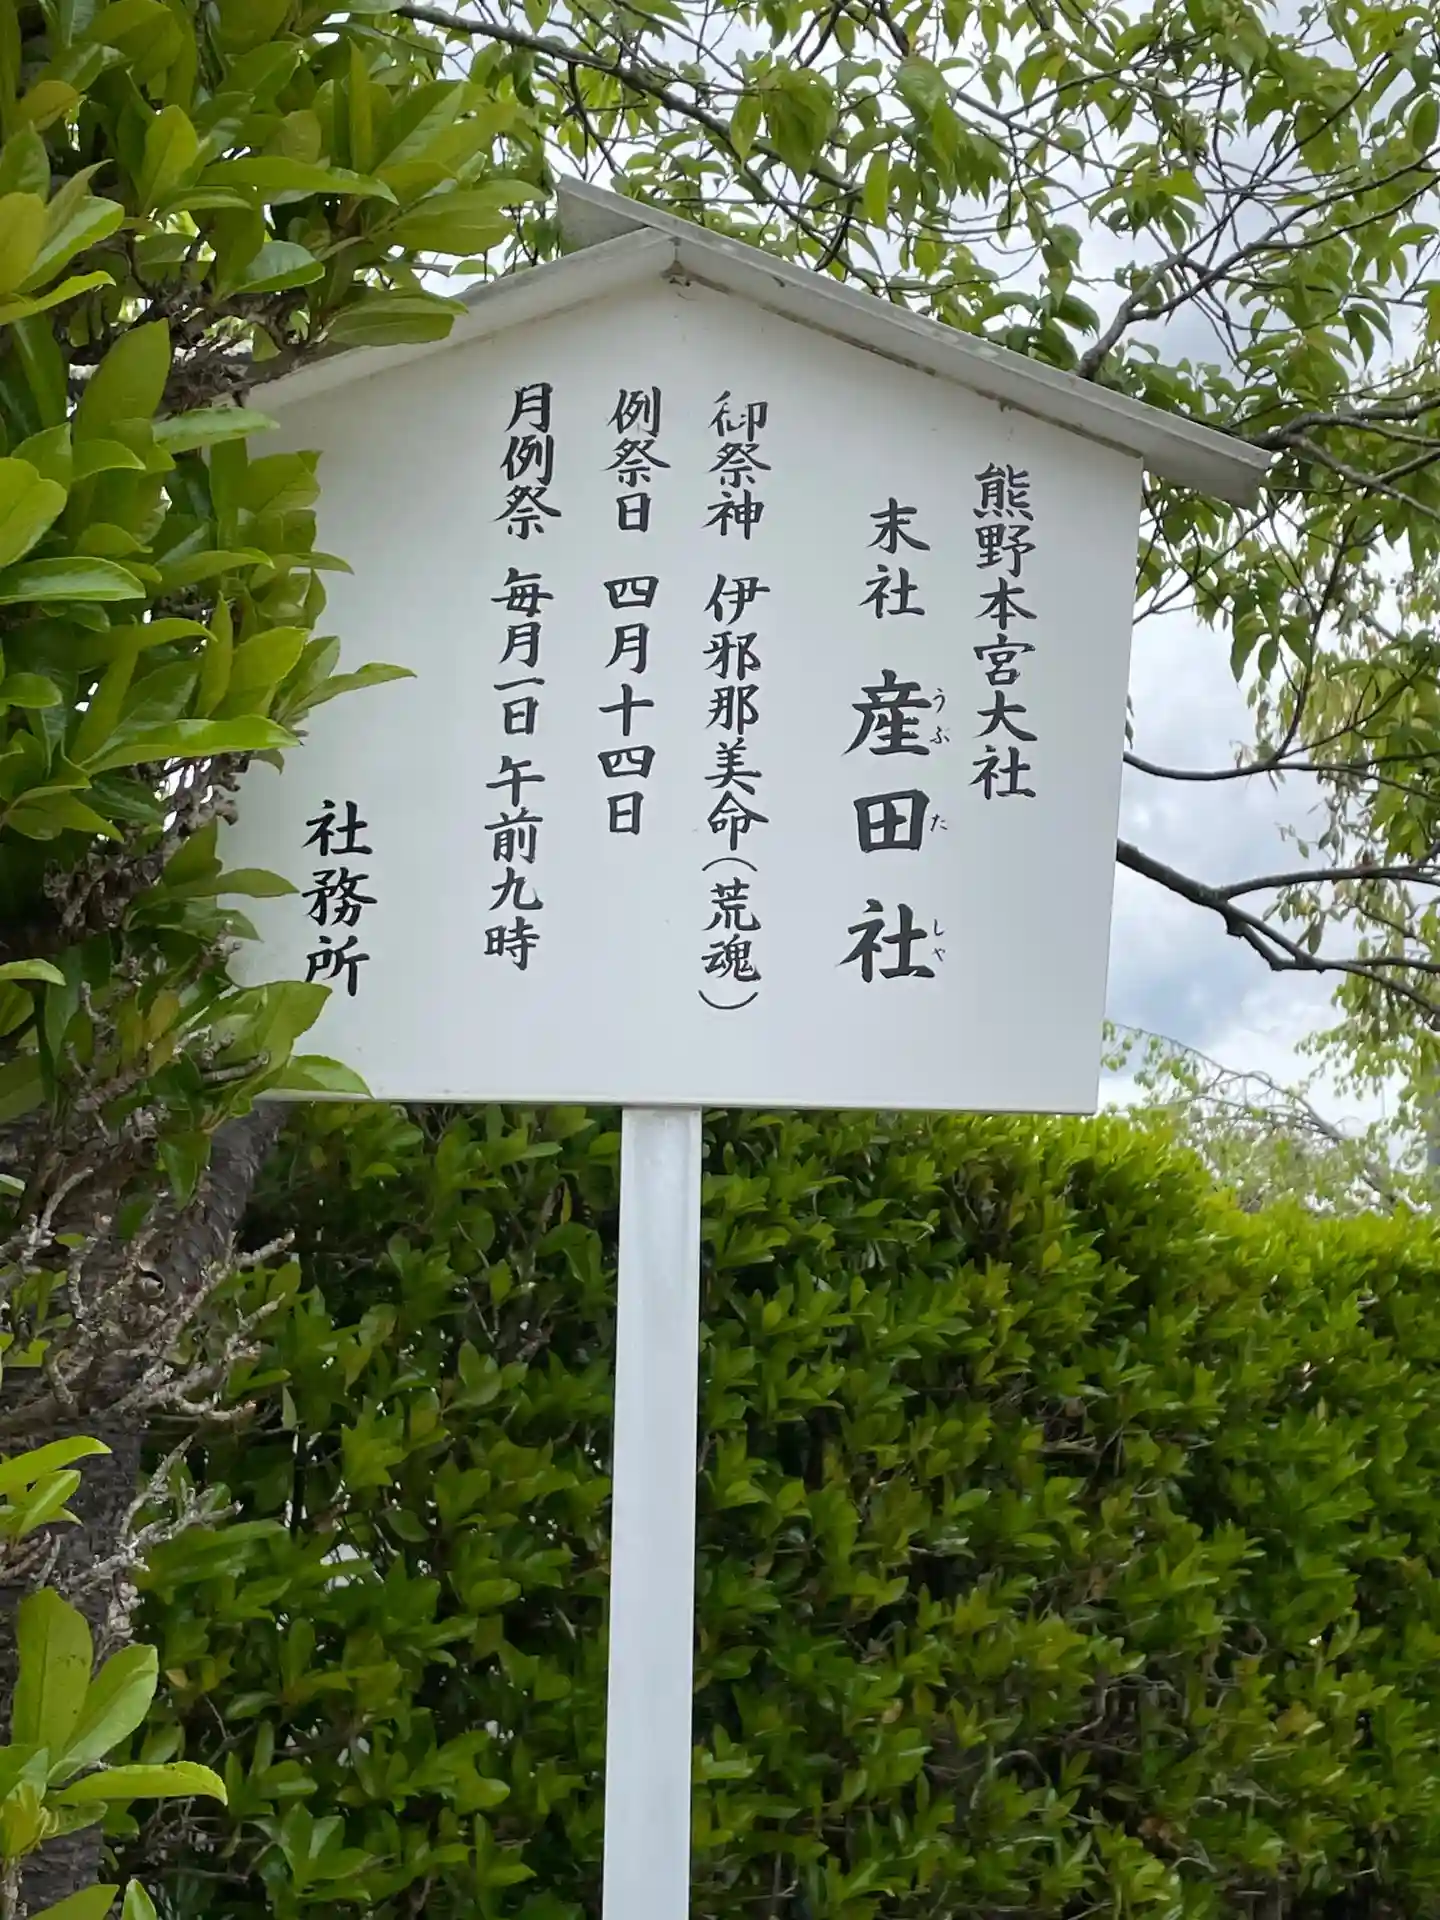 熊野本宮大社
末社 産田社
うぶ た しゃ
御祭神 伊邪那美命(荒魂)
例祭日 四月十四日
月例祭 毎月一日 午前九時
社務所